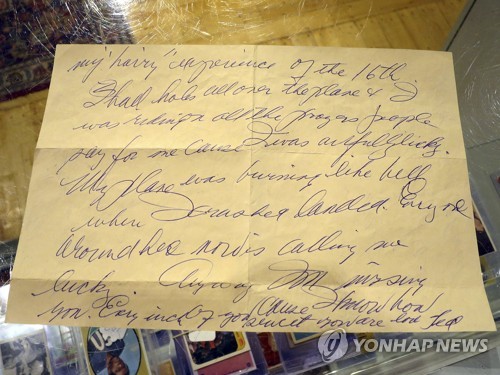 my "hairy" experience of the 16th.
I had holes all over the plane & I
was riding on all the prayers people
say for me cause I was awful lucky.
My plane was burning like hell
when I crashed landed. Every one
around here now is calling me
lucky. Anyway I'm missing
you. Every inch of you cause I know how
sweet you are
YONHAP NEWS